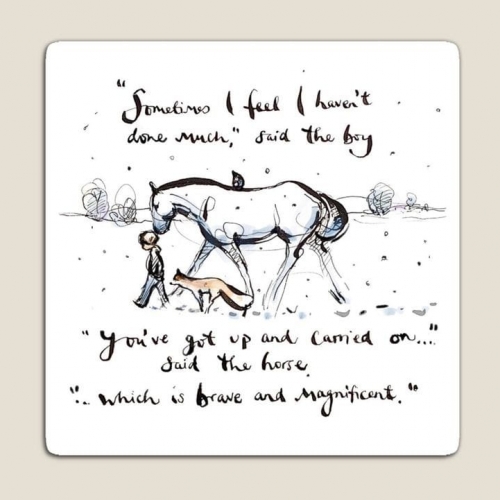 "Sometimes I feel I haven't
done much," said the boy
"You've got up and carried on..."
said the horse.
".. which is brave and magnificent."